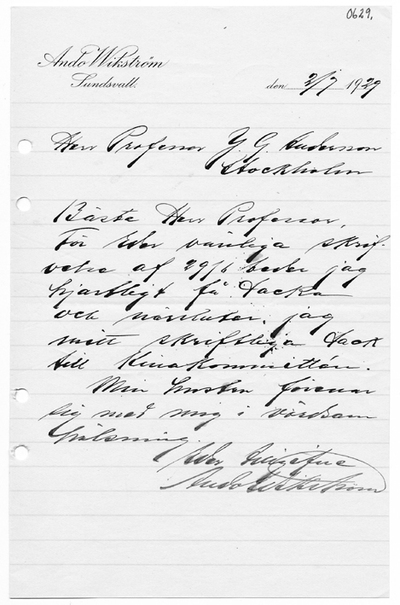 0629.
Ando Wikström
Sundsvall.
den 2/7 1929
Herr Professor J. G. Anderson
Stockholm
Bäste Herr Professor,
För Eder vänliga skrif-
velse af 29/6 beder jag
hjärtligt få tacka
och närsluter jag
mitt skriftliga tack
till Kinakommittén.
Min hustru förenar
sig med mig i vördsam
hälsning.
Eder
Ando Wikström